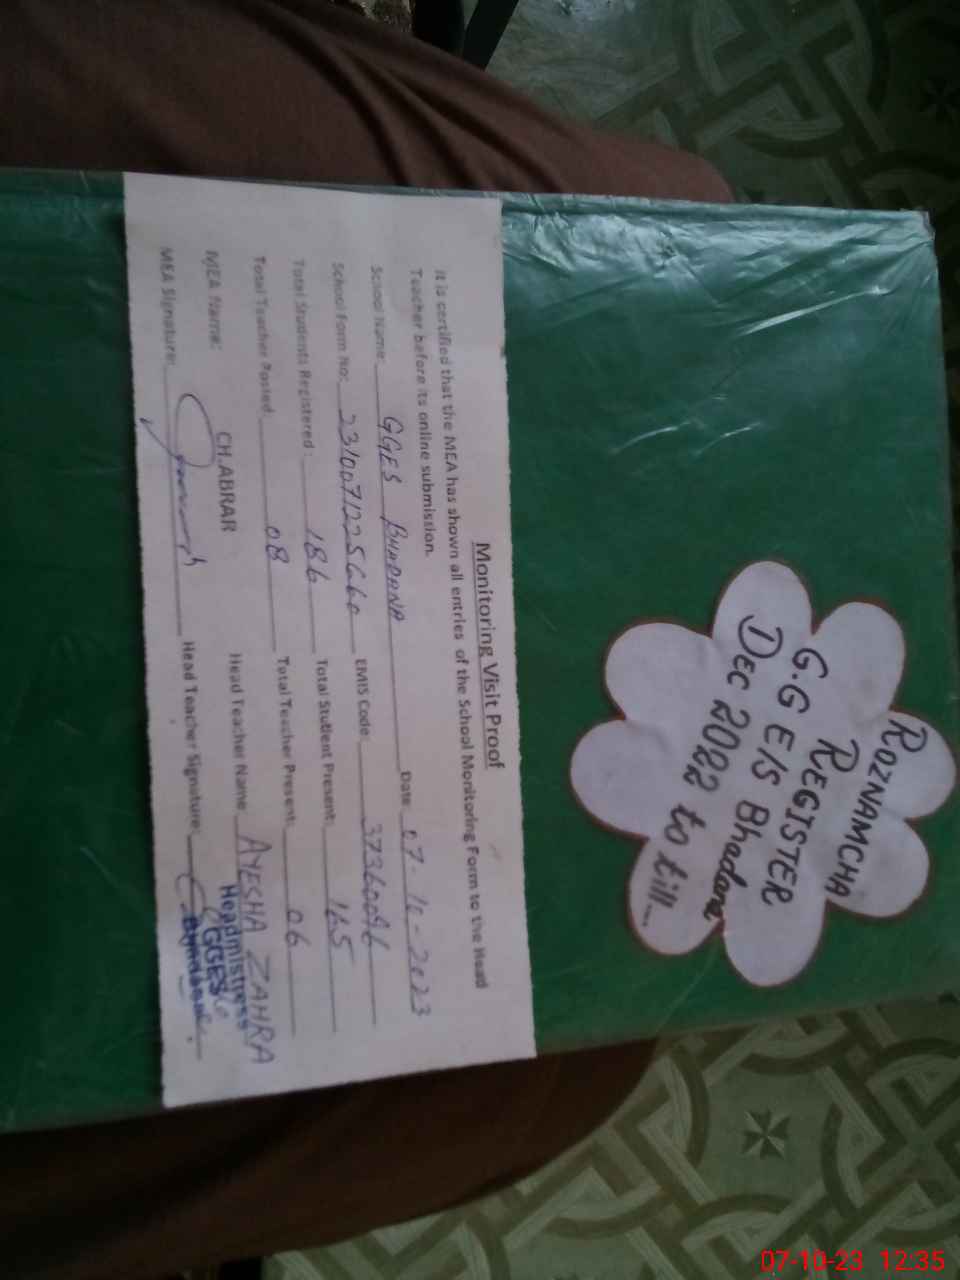 ROZNAMCHA
REGISTER
G.G E/S Bhadana
Dec 2022 to till---
Monitoring Visit Proof
It is certified that the MEA has shown all entries of the School Monitoring Form to the Head
Teacher before its online submission.
School Name: GGES BHADANA Date 07-10-2023
School Form No: 231007122566 EMIS Code: 37360096
Total Students Registered: 186 Total Student Present: 165
Total Teacher Posted 08 Total Teacher Present: 06
MEA Name: CH.ABRAR Head Teacher Name AYESHA ZAHRA
MEA Signature: Head Teacher Signature:
Headmistress
GGES
07-10-23 12:35